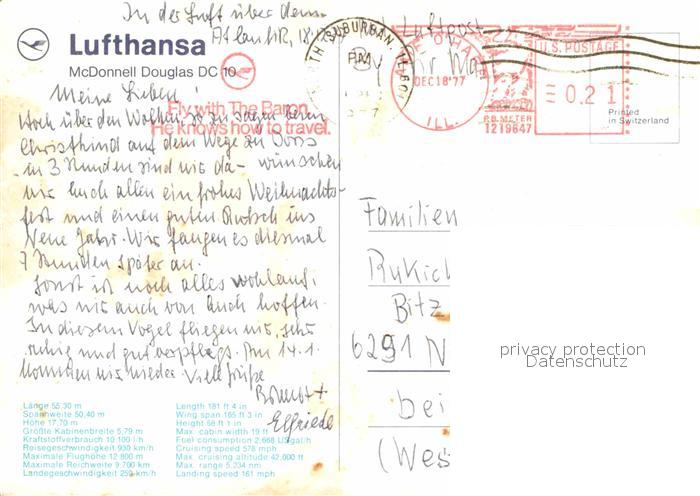 In der Luft über dem
Atlantik, 18.12.
Luftpost
Lufthansa
McDonnell Douglas DC 10
Fly with The Baron.
He knows how to travel.
TH SUBURBAN ILL 601
PM
O'HARE
DEC 18 '77
ILL.
U.S. POSTAGE
0.21
P.B. METER
1219647
Printed
in Switzerland
Meine Lieben!
Hoch über den Wolken, so zu sagen beim
Christkind auf dem Wege zu Doris
in 3 Stunden sind wir da - wünschen
wir Euch allen ein frohes Weihnachts-
fest und einen guten Rutsch ins
Neue Jahr. Wir fangen es diesmal
7 Stunden später an.
Sonst ist noch alles wohlauf,
was wir auch von Euch hoffen.
In diesem Vogel fliegen wir sehr
ruhig und gut verpflegt. Am 14.1.
kommen wir wieder. Viele Grüße
Elfriede
Familien
Rukich
Bitz
6291 N
bei
(Wes
privacy protection
Datenschutz
Länge 55,30 m
Spannweite 50,40 m
Höhe 17,70 m
Größte Kabinenbreite 5,79 m
Kraftstoffverbrauch 10 100 l/h
Reisegeschwindigkeit 930 km/h
Maximale Flughöhe 12 800 m
Maximale Reichweite 9 700 km
Landegeschwindigkeit 259 km/h
Length 181 ft 4 in
Wing span 165 ft 3 in
Height 58 ft 1 in
Max. cabin width 19 ft
Fuel consumption 2,668 US gal/h
Cruising speed 578 mph
Max. cruising altitude 42,000 ft
Max. range 5,234 nm
Landing speed 161 mph